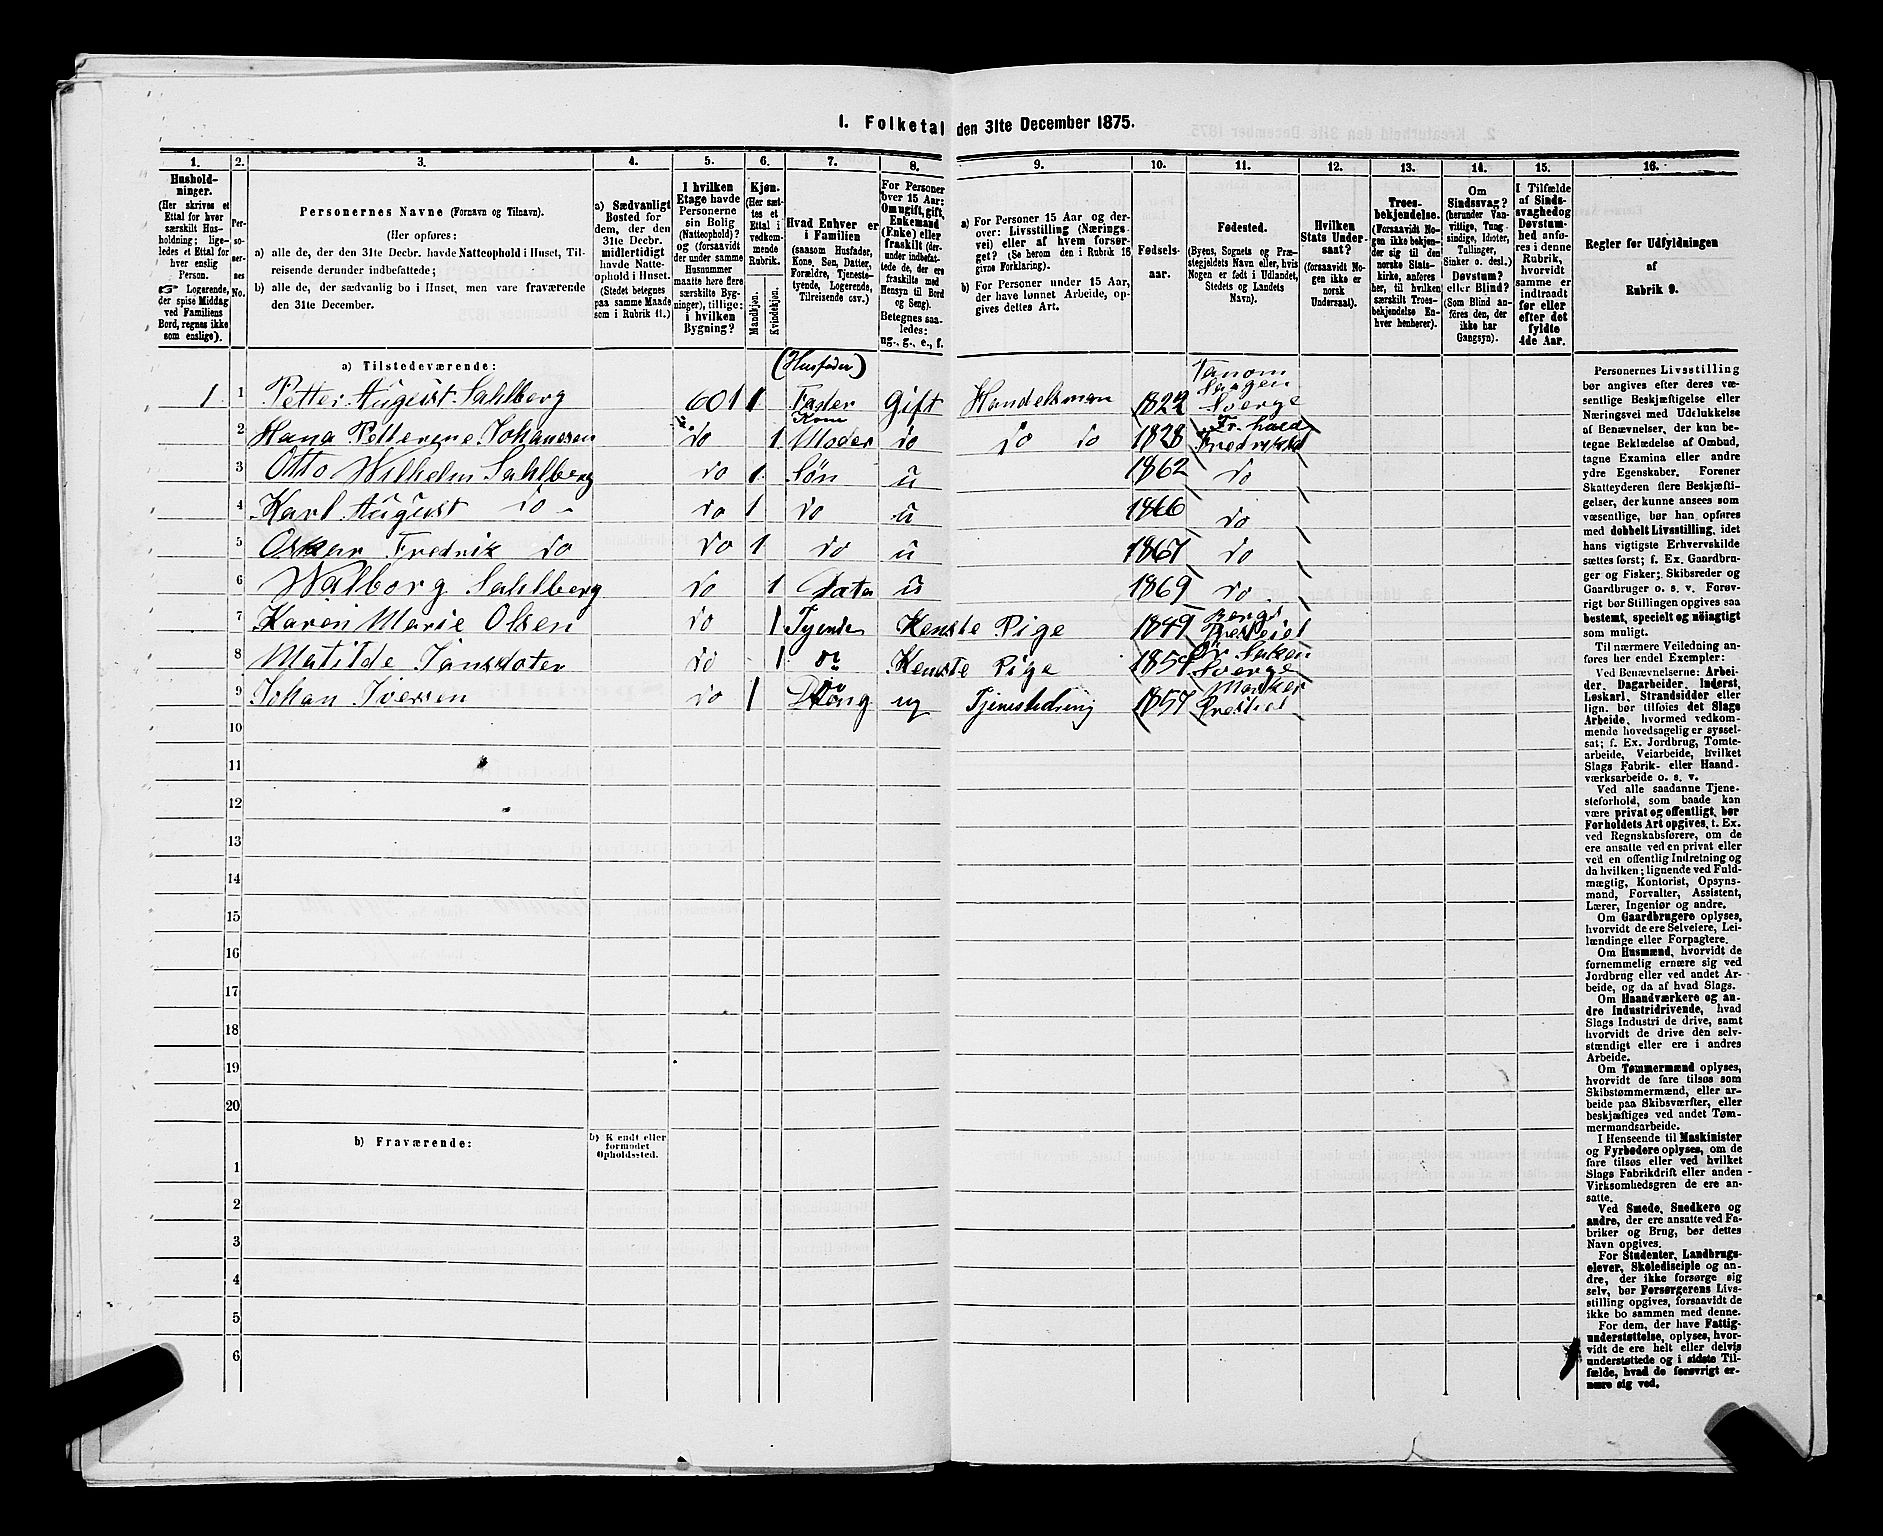 1. Folketal den 31te December 1875.
1. 2. 3. 4. 5. 6. 7. 8. 9. 10. 11. 12. 13. 14. 15. 16.
Hushold-
ninger.
(Her skrives et
Ettal for hver
særskilt Hus-
holdning; lige-
ledes et Ettal for
hver enslig
Person.
☞ Logerende,
der spise Middag
ved Familiens
Bord, regnes ikke
som enslige).
Per-
so-
ner-
nes
No.
Personernes Navne (Fornavn og Tilnavn).
(Her opføres:
a) alle de, der den 31te Decbr. havde Natteophold i Huset, Til-
reisende derunder indbefattede;
b) alle de, der sædvanlig bo i Huset, men vare fraværende
den 31te December.
a) Sædvanligt
Bosted for
dem, der den
31te Decbr.
midlertidigt
havde Natte-
ophold i Huset.
(Stedet betegnes
paa samme Maade
som i Rubrik 11.)
I hvilken
Etage havde
Personerne
sin Bolig
(Natteophold)?
og (forsaavidt
der under samme
Husnummer
maatte høre flere
særskilte Byg-
ninger), tillige:
i hvilken
Bygning?
Kjøn.
(Her sæt-
tes et
Ettal i
vedkom-
mende
Rubrik.
Mandkjøn.
Kvindekjøn.
Hvad Enhver er
i Familien
(saasom Husfader,
Kone, Søn, Datter,
Forældre, Tjeneste-
tyende, Logerende,
Tilreisende osv.)
For Personer
over 15 Aar:
Om ugift, gift,
Enkemand
(Enke) eller
fraskilt (der-
under indbefat-
tede de, der ere
fraskilte med
Hensyn til Bord
og Seng).
Betegnes saa-
ledes:
ug., g., e., f.
a) For Personer 15 Aar og der-
over: Livsstilling (Nærings-
vei) eller af hvem forsør-
get? (Se herom den i Rubrik 16
givne Forklaring).
b) For Personer under 15 Aar,
der have lønnet Arbeide, op-
gives dettes Art.
Fødsels-
aar.
Fødested.
(Byens, Sognets og Præ-
stegjeldets Navn eller, hvis
Nogen er født i Udlandet,
Stedets og Landets
Navn).
Hvilken
Stats Under-
saat?
(forsaavidt No-
gen ikke er
norsk
Undersaat).
Troes-
bekjendelse.
(Forsaavidt No-
gen ikke bekjen-
der sig til den
norske Stats-
kirke, anføres
her, til hvilken
særskilt Troes-
bekjendelse En-
hver henhører).
Om
Sindssvag?
(herunder Van-
vittige, Tung-
sindige, Idioter,
Tullinger,
Sinker o. desl.)
Døvstum?
eller Blind?
(Som Blind an-
føres den, der
ikke har
Gangsyn).
I Tilfælde
af Sinds-
svaghed og
Døvstum-
hed anfø-
res i denne
Rubrik,
hvorvidt
samme er
indtraadt
før eller
efter det
fyldte
4de Aar.
Regler for Udfyldningen
af
Rubrik 9.
a) Tilstedeværende: (Husfader)
1 1 Petter August Sahlberg 601 1 Fader Gift Handelsman 1822 Tanom Sverge
2 Hana Petterene Johanssen do 1 Kone Moder do do do 1828 Fr. hald
3 Otto Wilhelm Sahlberg do 1 Sön u 1862 do
4 Karl August do do 1 do u 1866 do
5 Oskar Fredrik do do 1 do u 1867 do
6 Walborg Sahlberg do 1 Dater u 1869 do
7 Karen Marie Olsen do 1 Tyende Kenste Pige 1849
8 Matilde Jansdater do 1 do Kenste Pige Sverge
9 Johan Iversen do 1 ug 1857
10
11
12
13
14
15
16
17
18
19
20
b) Fraværende: b) Kjendt eller
formodet
Opholdssted.
1
2
3
4
5
6
Personernes Livsstilling
bør angives efter deres væ-
sentlige Beskjæftigelse eller
Næringsvei med Udelukkelse
af Benævnelser, der kun be-
tegne Beklædelse af Ombud,
tagne Examina eller andre
ydre Egenskaber. Forener
Skatteyderen flere Beskjæfti-
gelser, der kunne ansees som
væsentlige, bør han opføres
med dobbelt Livsstilling, idet
hans vigtigste Erhvervskilde
sættes først; f. Ex. Gaardbru-
ger og Fisker; Skibsreder og
Gaardbruger o. s. v. Forøv-
rigt bør Stillingen opgives saa
bestemt, specielt og nøiagtigt
som muligt.
Til nærmere Veiledning an-
føres her endel Exempler:
Ved Benævnelserne: Arbei-
der, Dagarbeider, Inderst,
Løskarl, Strandsidder eller
lign. bør tilføies det Slags
Arbeide, hvormed vedkom-
mende hovedsagelig er syssel-
sat; f. Ex. Jordbrug, Tomte-
arbeide, Veiarbeide, hvilket
Slags Fabrik- eller Haand-
værksarbeide o. s. v.
Ved alle saadanne Tjene-
steforhold, som baade kan
være privat og offentligt, bør
Forholdets Art opgives, t. Ex.
ved Regnskabsførere, om de
ere ansatte ved en privat eller
ved en offentlig Indretning og
da hvilken; lignende ved Fuld-
mægtig, Kontorist, Opsyns-
mand, Forvalter, Assistent,
Lærer, Ingeniør og andre.
Om Gaardbrugere oplyses,
hvorvidt de ere Selveiere, Lei-
lændinge eller Forpagtere.
Om Husmænd, hvorvidt de
fornemmelig ernære sig ved
Jordbrug eller ved andet Ar-
beide, og da af hvad Slags.
Om Haandværkere og an-
dre Industridrivende, hvad
Slags Industri de drive, samt
hvorvidt de drive den selv-
stændigt eller ere i andres
Arbeide.
Om Tømmermænd oplyses,
hvorvidt de fare tilsøs som
Skibstømmermænd, eller ar-
beide paa Skibsværfter, eller
beskjæftiges ved andet Tøm-
mermandsarbeide.
I Henseende til Maskinister
og Fyrbødere oplyses, om de
fare tilsøs eller ved hvilket
Slags Fabrikdrift eller anden
Virksomhedsgren de ere an-
satte.
Ved Smede, Snedkere og
andre, der ere ansatte ved Fa-
briker og Brug, bør dettes
Navn opgives.
For Studenter, Landbrugs-
elever, Skoledisciple og an-
dre, der ikke forsørge sig
selv, bør Forsørgerens Livs-
stilling opgives, forsaavidt de
ikke bo sammen med denne.
For dem, der have Fattig-
understøttelse, oplyses, hvor-
vidt de ere helt eller delvis
understøttede og i sidste Til-
fælde, hvad de forøvrigt er-
nære sig ved.